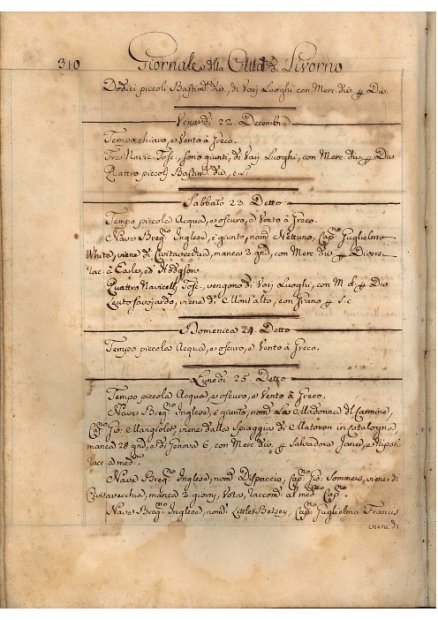 310 Giornale della Città di Livorno
Dodici piccoli Bastim.ti div., di Varj Luoghi con Merc. div. p Div.
Venerdì 22. Decembre
Tempo chiaro, e Vento à Greco.
Tre Navic. Tosc. sono giunti, di Varj Luoghi, con Merc. div. p Div.
Quattro piccoli Bastim.ti div.
Sabbato 23. Detto
Tempo piccola Acqua, e oscuro, e Vento à Greco.
Nave Brig.no Inglese, è giunto, nom.o Nettuno, Cap.no Guglielmo
White, viene di Civitavecchia, manca 2 gni, con Merc. div. p Diver.
rac. à Earle, ed Hodgson
Quattro Navicelli Tosc. vengono di Varj Luoghi, con M. d. p Div.
Leuto savojardo, viene di Mont'alto, con Grano p
Domenica 24. Detto
Tempo piccola Acqua, e oscuro, e Vento à Greco.
Lunedì 25. Detto
Tempo piccola Acqua, e oscuro, e Vento à Greco.
Nave Brig.no Inglese, è giunto, nom.o La Madonna del Carmine,
Cap.no Gio. Margiolet, viene dalla Spiaggia di Mataron in Catalogna
manca 28 gni, e di Genova 6, con Merc. div. p Salvadore
rac. ad med.
Nave Brig.no Inglese, nom.o Dispaccio, Cap.no Gio. Sommers, viene di
Civitavecchia, manca 2. giorni, Vota, raccom. al med.o Cap.no
Nave Brig.no Inglese, nom.o Little Betsey, Cap.no Guglielmo Francis
viene di